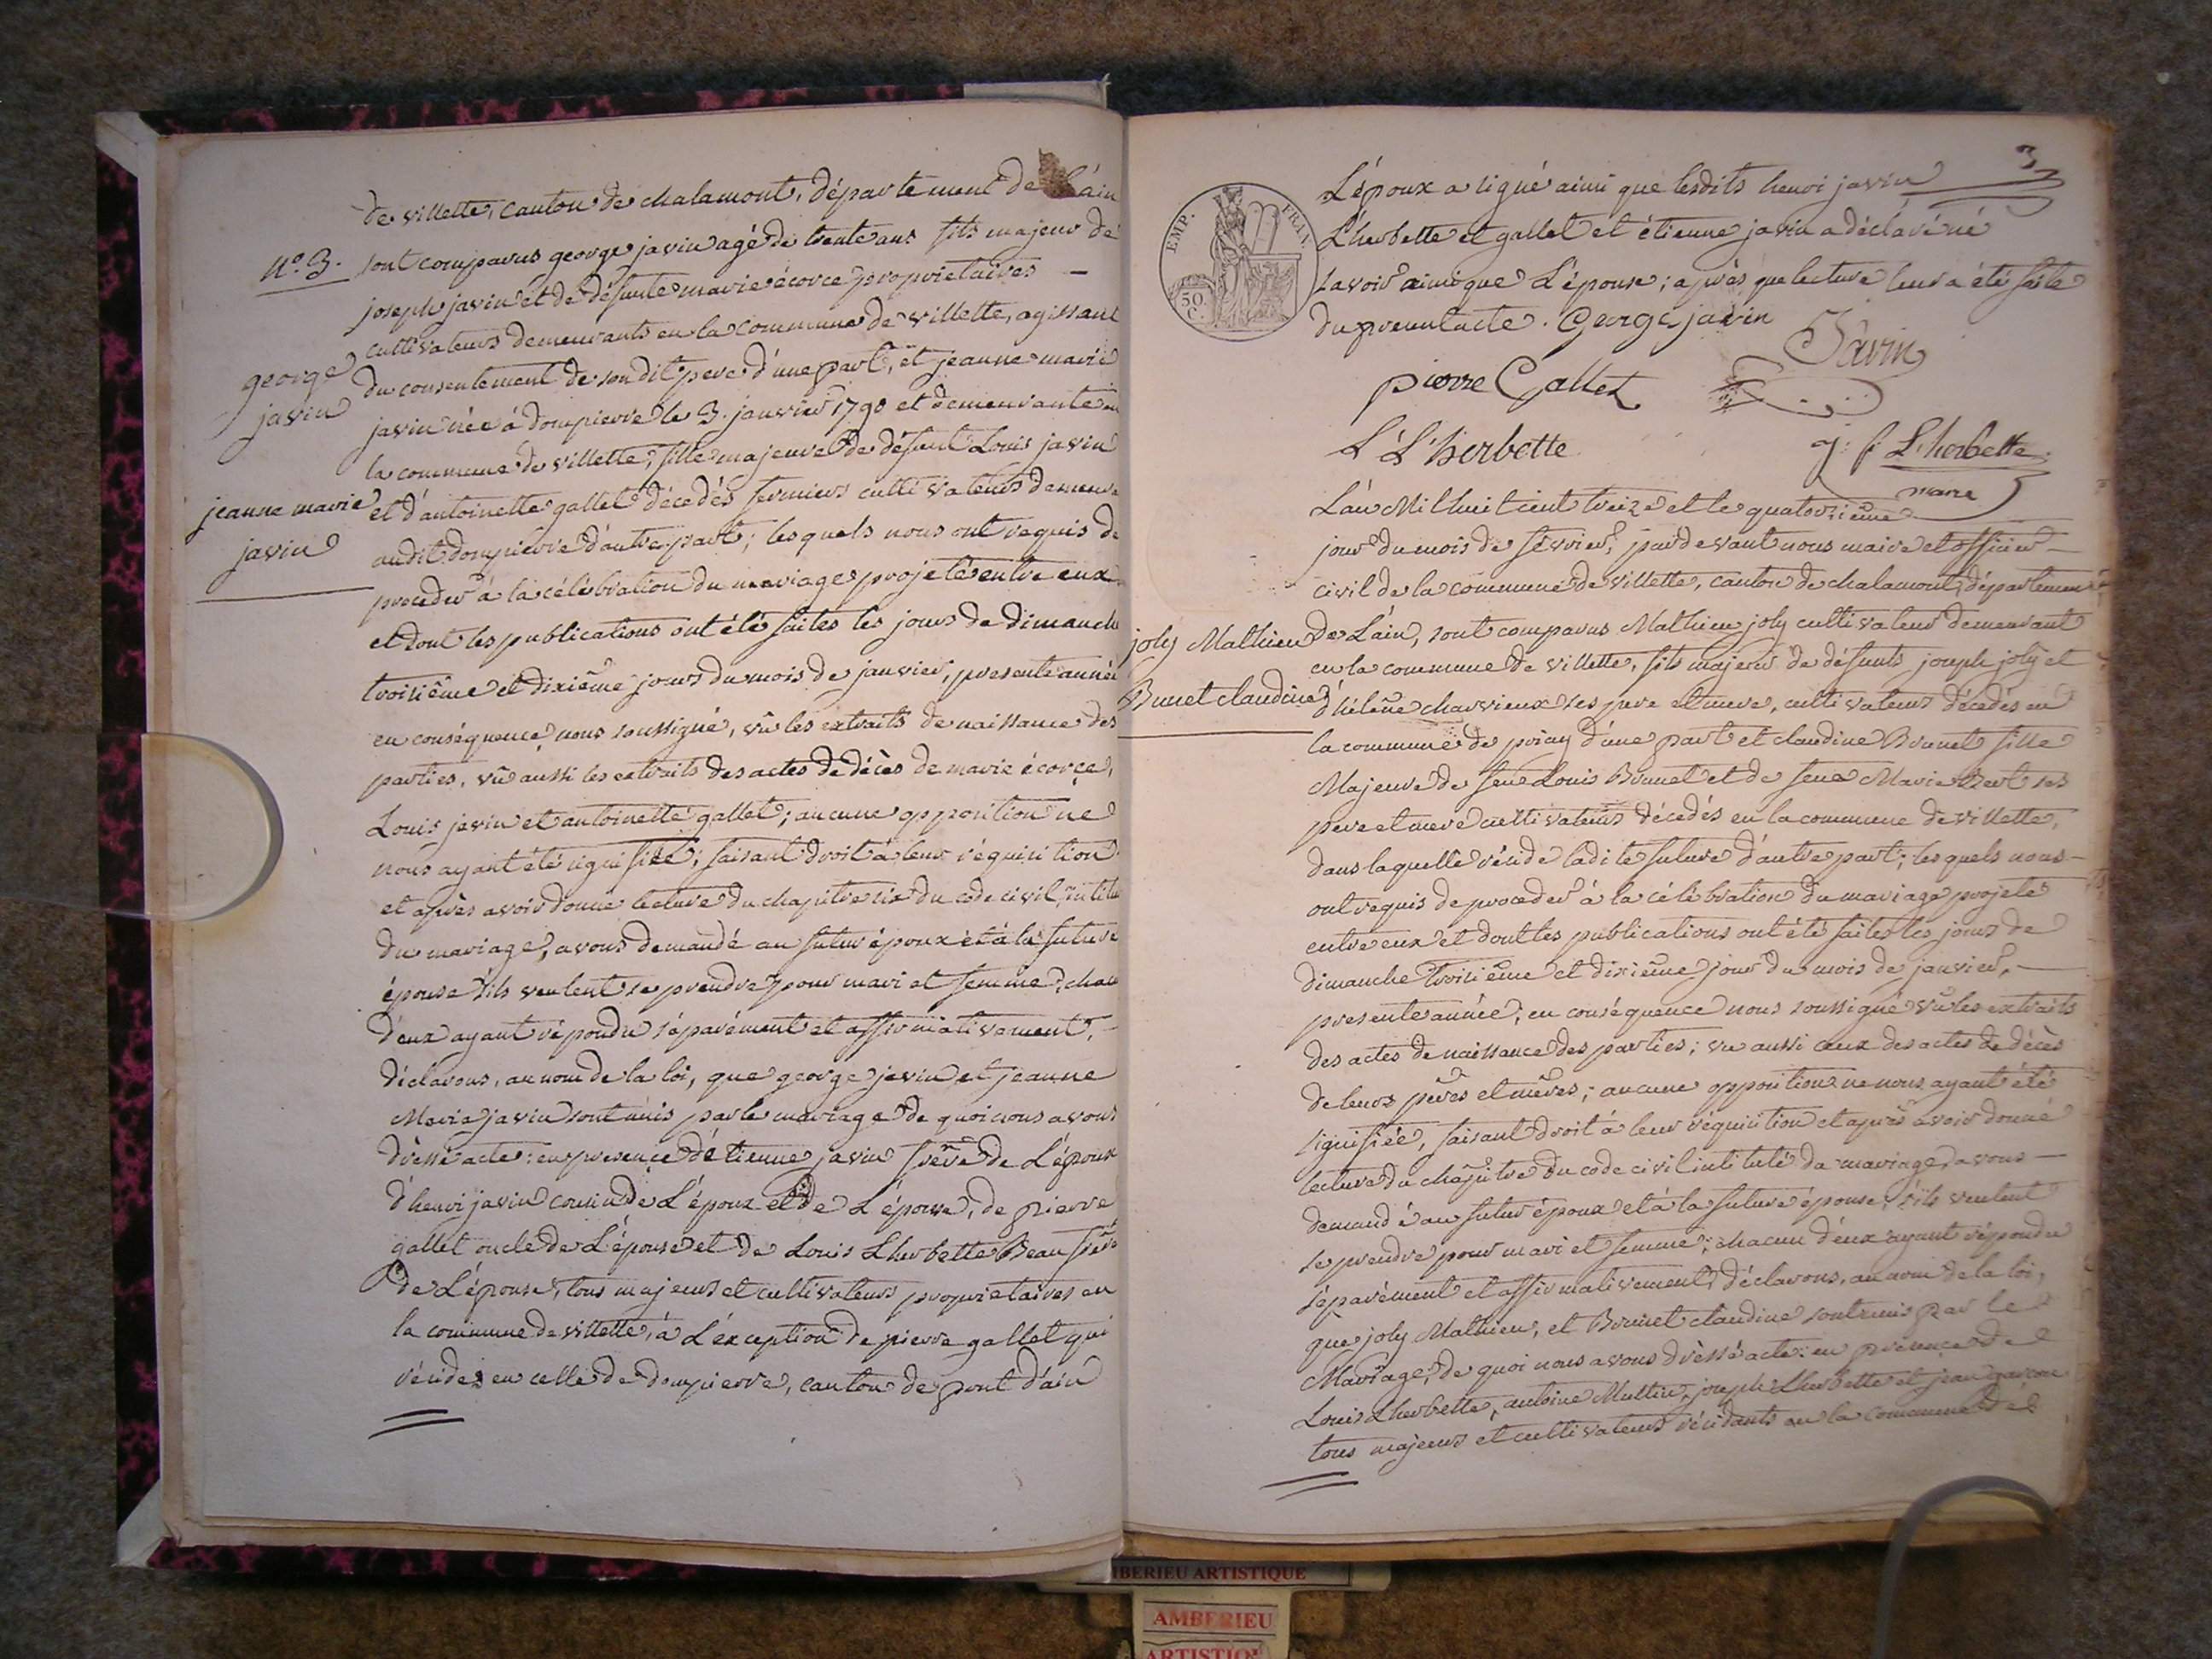 de villette, canton de chalamont, département de Láin
N.º 3. sont comparus george javin agé de trente ans fils majeur de
joseph javin et de défunte marie écorce proprietaires —
cultivateurs demeurants en la commune de villette, agissant
george
javin
du consentement de son dit pere d'une part, et jeanne marie
javin née à dompierre le 3. janvier 1790 et demeurante en
la commune de villette, fille majeure de défunt Louis javin
jeanne marie
javin
et d'antoinette gallet décedés fermiers cultivateurs demeura
audit dompierre d'autre part; lesquels nous ont requis de
proceder à la célébration du mariage projeté entre eux
et dont les publications ont été faites les jours de dimanche
troisiême et dixiême jours du mois de janvier, presente année
en conséquence nous soussigné, vû les extraits de naissance des
parties, vû aussi les extraits des actes de décès de marie écorce,
Louis javin et antoinette gallet; aucune opposition ne
nous ayant été signifiée; faisant droit à leur réquisition
et après avoir donné lecture du chapitre six du code civil, intitulé
du mariage, avons demandé au futur époux et à la future
épouse s'ils veulent se prendre pour mari et femme, chacu
d'eux ayant répondu séparément et affirmativement,
déclarons, au nom de la loi, que george javin et jeanne
Marie javin sont unis par le mariage de quoi nous avons
dréssé acte: en presence d'étienne javin frère de L'époux
d'henri javin cousin de L'époux et de L'épouse, de pierre
gallet oncle de L'épouse et de Louis Lherbette Beau frère
de L'épouse, tous majeurs et cultivateurs proprietaires en
la commune de villette, à L'éxception de pierre gallet qui
réside en celle de dompierre, canton de pont d'ain
3
EMP. FRAN.
50 C.
L'époux a signé ainsi que lesdits henri javin
L'herbette et gallet et étienne javin a déclaré né
savoir ainsi que L'épouse; après que lecture leur a été faite
du present acte. George javin
Javin
pierre Gallet
L L'herbette
j: f. L'herbette
maire
L'an Mil huit cent treize et le quatorziême
jour du mois de février, pardevant nous maire et officier —
civil de la commune de villette, canton de chalamont, département
joly Mathieu
Bunet claudine
de L'ain, sont comparus Mathieu joly cultivateur demeurant
en la commune de villette, fils majeur de défunts joseph joly et
d'hélène charvieux ses pere et mere, cultivateurs décedés en
la commune de priay d'une part et claudine Brunet fille
Majeure de feu Louis Brunet et de feue Marie ses
pere et mere cultivateurs décedés en la commune de villette,
dans laquelle réside ladite future d'autre part; lesquels nous —
ont requis de proceder à la célébration du mariage projeté
entre eux et dont les publications ont été faites les jours de
dimanche troisiême et dixiême jour du mois de janvier, —
presente année; en conséquence nous soussigné vû les extraits
des actes de naissance des parties; vu aussi ceux des actes de décès
de leurs pères et mères; aucune opposition ne nous ayant été
signifiée, faisant droit à leur réquisition et après avoir donné
lecture du chapitre du code civil intitulé du mariage, avons —
demandé au futur époux et à la future épouse, s'ils veulent
se prendre pour mari et femme; chacun d'eux ayant répondu
séparément et affirmativement, déclarons, au nom de la loi,
que joly Mathieu, et Brunet claudine sont unis par le
Mariage, de quoi nous avons dréssé acte: en présence de
Louis Lherbette, antoine Muttin, joseph Lherbette et jean
tous majeurs et cultivateurs résidants en la commune de
AMBERIEU ARTISTIQUE
AMBERIEU
ARTISTIQUE